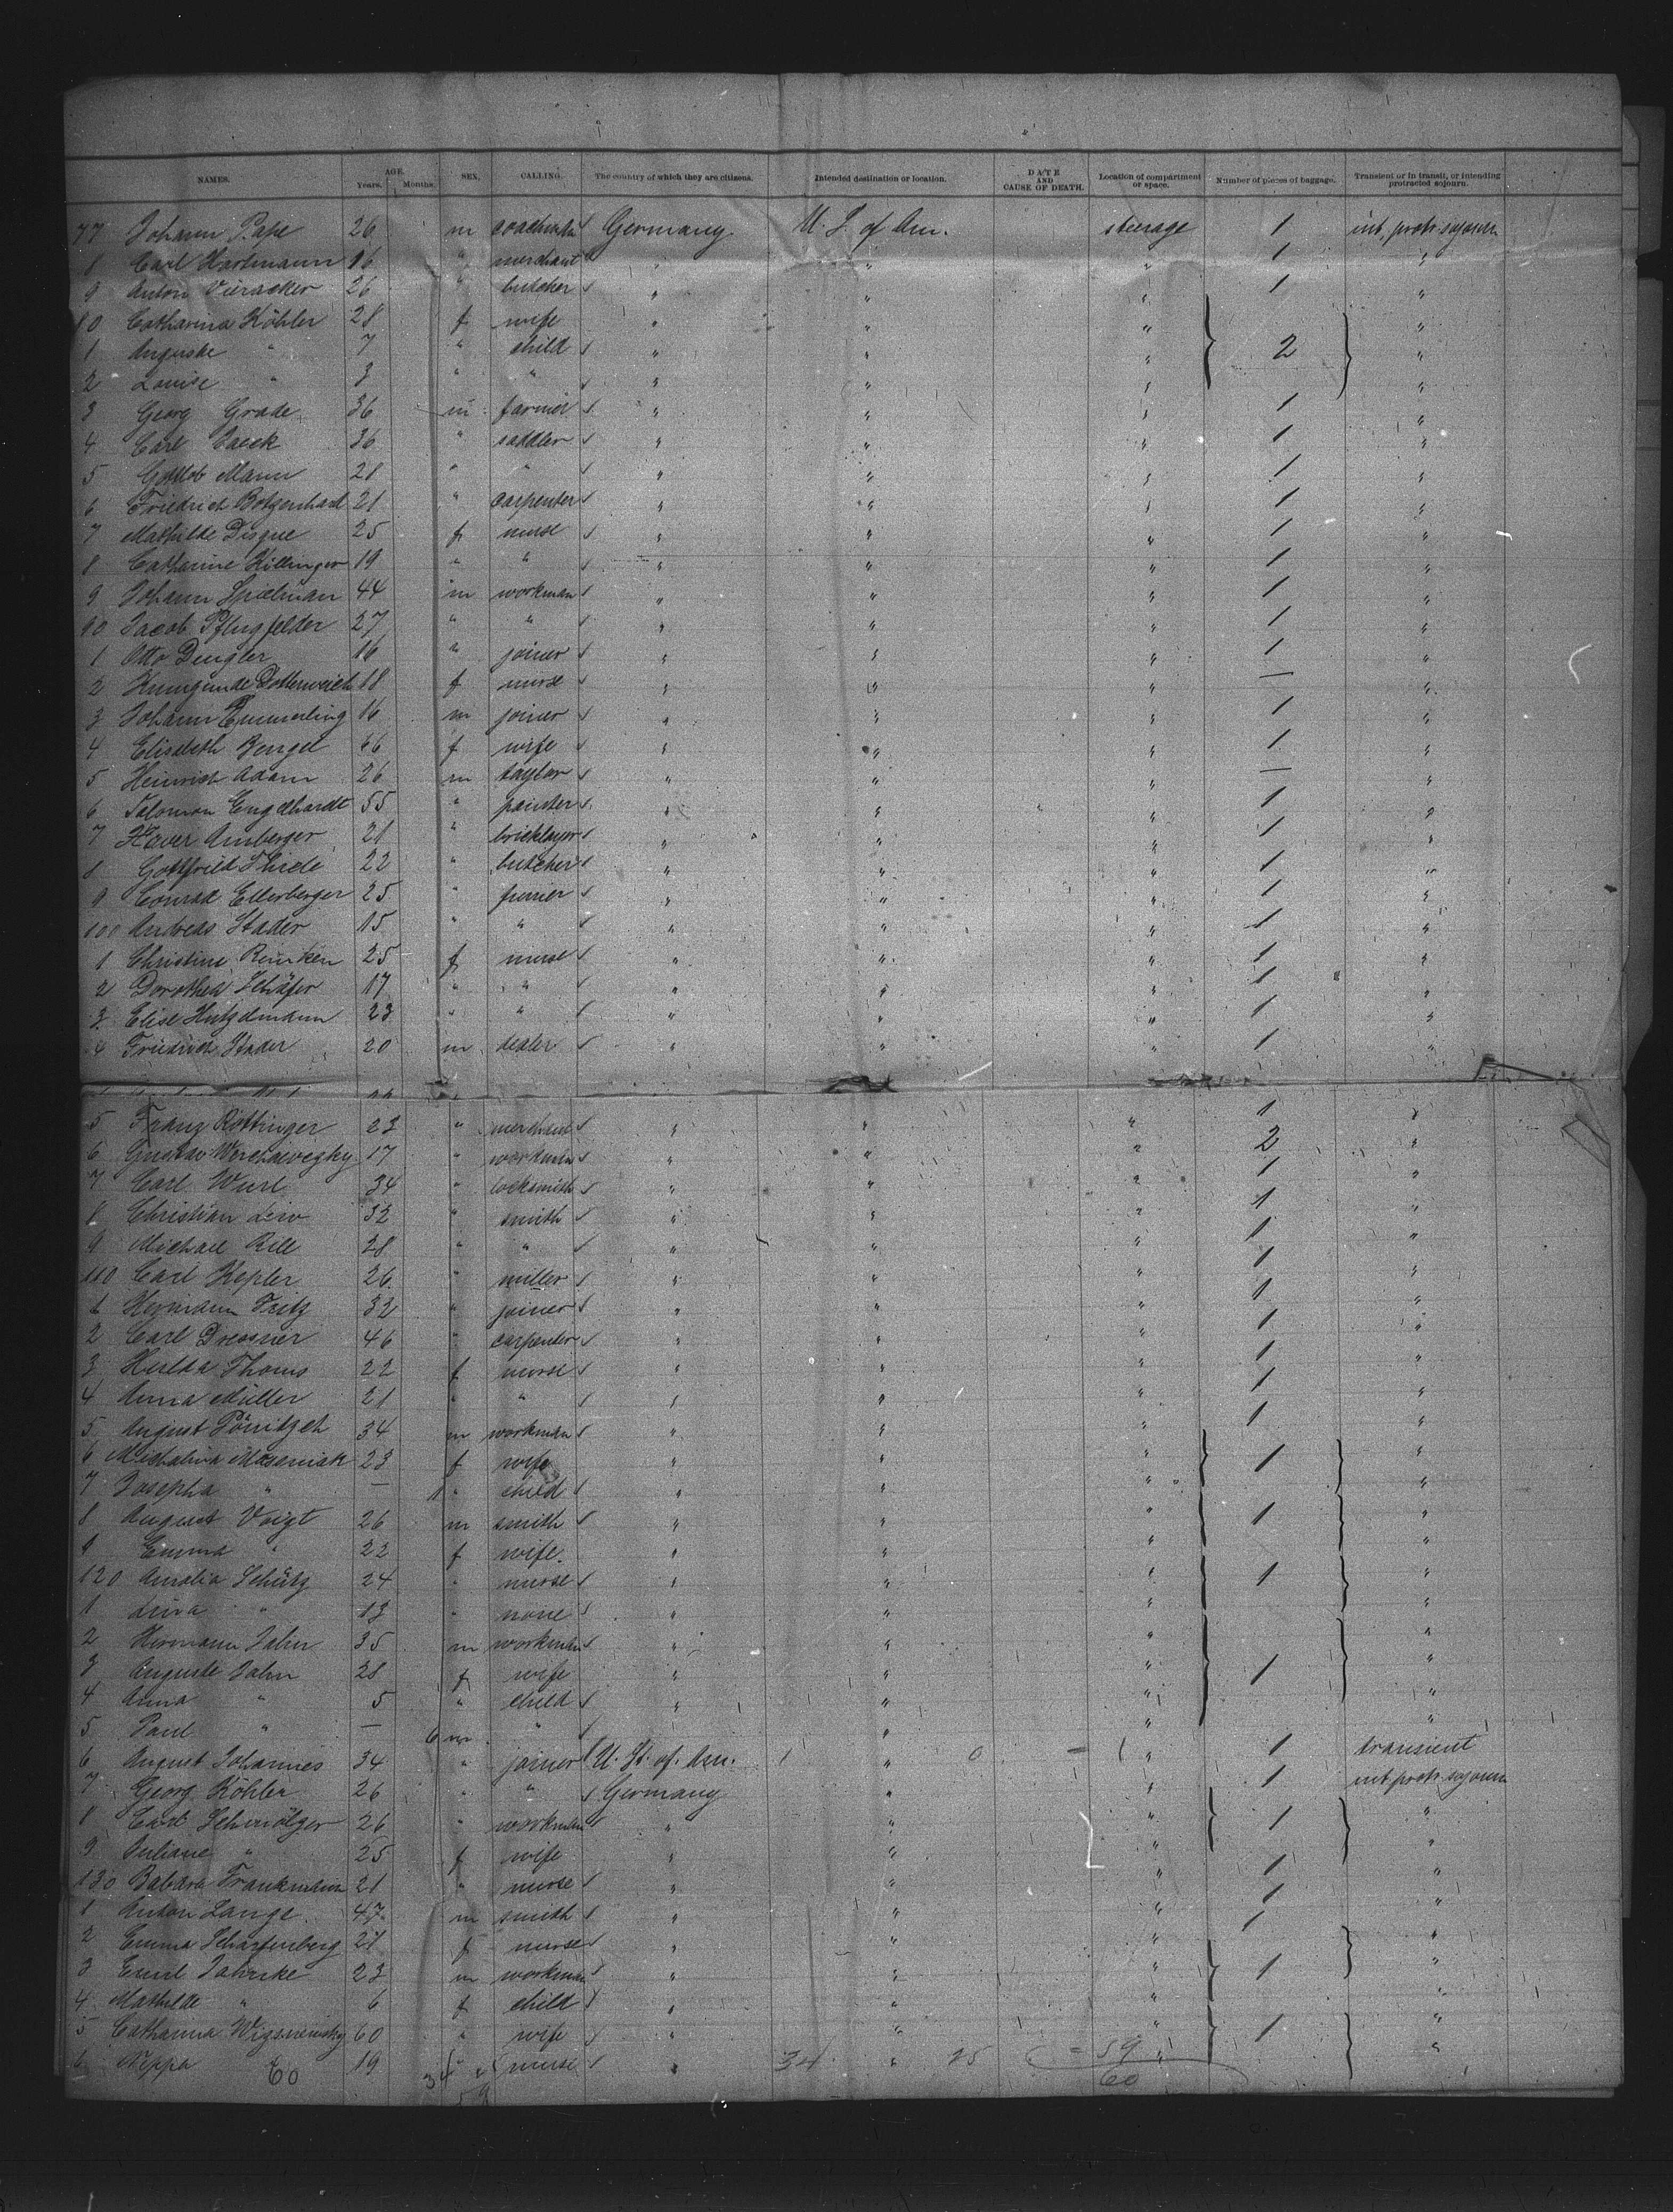 NAMES. AGE. Years. Months. SEX. CALLING. The country of which they are citizens. Intended destination or location. DATE AND CAUSE OF DEATH. Location of compartment or space. Number of pieces of baggage. Transient or in transit, or intending protracted sojourn.
77 Johann Pape 26 m coachman Germany U. S. of Am. steerage 1 int. protr. sojourn
8 Carl Hartmann 16 " merchant " " " 1 "
9 Anton 26 " butcher " " " 1 "
80 Catharina Köhler 28 f wife " " " "
1 Auguste " 7 " child " " " 2 "
2 Louise " 3 " " " " " "
3 Georg Grade 36 m farmer " " " 1 "
4 Carl 36 " saddler " " " 1 "
5 Gottlob Mann 28 " " " " " 1 "
6 Friedrich 21 " carpenter " " " 1 "
7 Mathilde Disque 25 f nurse " " " 1 "
8 Catharine Killinger 19 " " " " " 1 "
9 Johann Spielman 44 m workman " " " 1 "
90 Jacob Pflugfelder 27 " " " " " 1 "
1 Otto Dengler 16 " joiner " " " 1 "
2 Kunigunde Dotterweich 18 f nurse " " " — "
3 Johann Emmerling 16 m joiner " " " 1 "
4 Elisabeth Bengel f wife " " " 1 "
5 Heinrich Adam 26 m taylor " " " — "
6 Salomon Engelhardt 55 " painter " " " 1 "
7 Xaver Amberger 21 " bricklayer " " " 1 "
8 Gottfried Thiele 22 " butcher " " " 1 "
9 Conrad Ellerberger 25 " " " " 1 "
100 Andreas Stader 15 " " " " " 1 "
1 Christine Reinken 25 f nurse " " " 1 "
2 Dorothea Schäfer 17 " " " " " 1 "
3 Elise 23 " " " " " 1 "
4 Friedrich Stader 20 m dealer " " " 1 "
5 Franz Röttinger 23 " merchant " " " 1 "
6 Gustav 17 " workman " " " 2 "
7 Carl Wurl 34 " locksmith " " " 1 "
8 Christian 32 " smith " " " 1 "
9 Michael Rill 28 " " " " " 1 "
110 Carl Kepler 26 " miller " " " 1 "
1 Hermann Fritz 32 " joiner " " " 1 "
2 Carl Dressner 46 " carpenter " " " 1 "
3 Hulda Thoms 22 f nurse " " " 1 "
4 Anna Müller 21 " " " " " 1 "
5 August 34 m workman " " " 1 "
6 Michalina 23 f wife " " " 1 "
7 Josepha " — " child " " " "
8 August Voigt 26 m smith " " " 1 "
9 Emma " 22 f wife " " " "
120 Amalia Schütz 24 " nurse " " " 1 "
1 " 13 " none " " " "
2 Hermann Jahn 35 m workman " " " "
3 Auguste Jahn 28 f wife " " " 1 "
4 Anna " 5 " child " " " "
5 Paul " — 6 m " " " " "
6 August Johannes 34 " joiner U. St. of Am. 1 " 0 = 1 " 1 transient
7 Georg Köhler 26 " " Germany " " 1 int. protr. sojourn
8 Carl 26 " workman " " " 1 "
9 Juliane " 25 f wife " " " "
130 Babara Frankmann 21 " nurse " " " 1 "
1 Anton Lange 47 m smith " " " 1 "
2 Emma Scharfenberg 21 f nurse " " " 1 "
3 Emil Jahnke 23 m workman " " " 1 "
4 Mathilde " 6 f child " " " "
5 Catharina 60 " wife " " " 1 "
6 19 " nurse " 34 " 25 = 59 " "
60 34 60
59